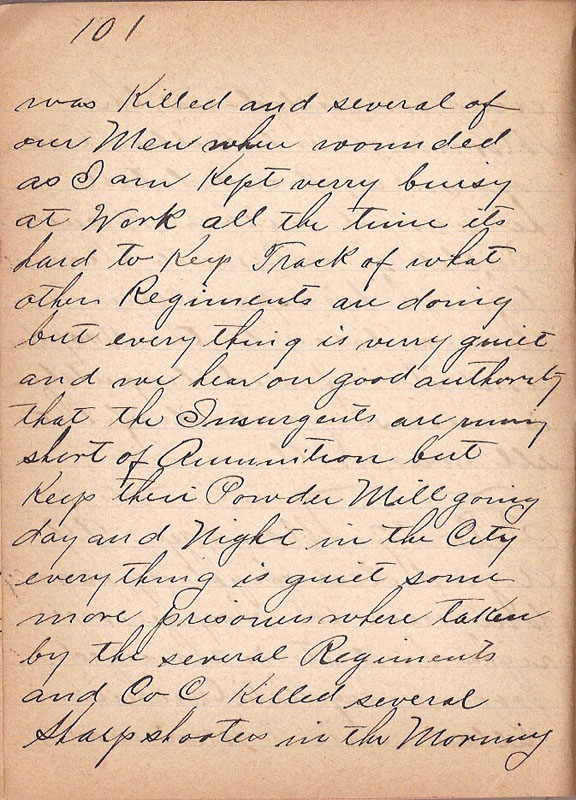 101
was Killed and several of
our Men wher wounded
as I am Kept verry buisy
at Work all the time its
hard to Keep Track of what
other Regiments are doing
but everything is verry quiet
and we hear on good authority
that the Insurgents are runing
short of Ammunition but
Keep their Powder Mill going
day and Night in the City
everything is quiet some
more prisoners where taken
by the several Regiments
and Co C Killed several
Sharpshooters in the Morning